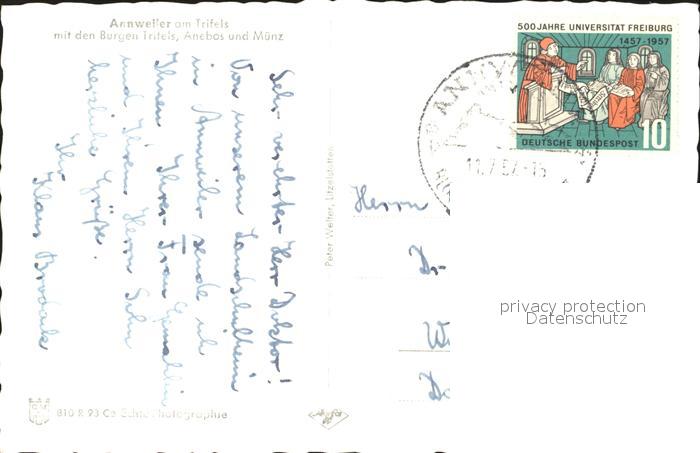 Annweiler am Trifels
mit den Burgen Trifels, Anebos und Münz
Sehr verehrter Herr Doktor!
Von unserem Landschulheim
in Annweiler sende ich
Ihnen, Ihrer Frau Gemahlin
und Ihrem Herrn Sohn
herzliche Grüße.
Ihr
Klaus
810 R 93 Co Echte Photographie
Peter Welter, Litzelstetten
500 JAHRE UNIVERSITÄT FREIBURG
1457-1957
10
DEUTSCHE BUNDESPOST
ANNW
11.7.57.-15
Herrn
Dr.
privacy protection
Datenschutz